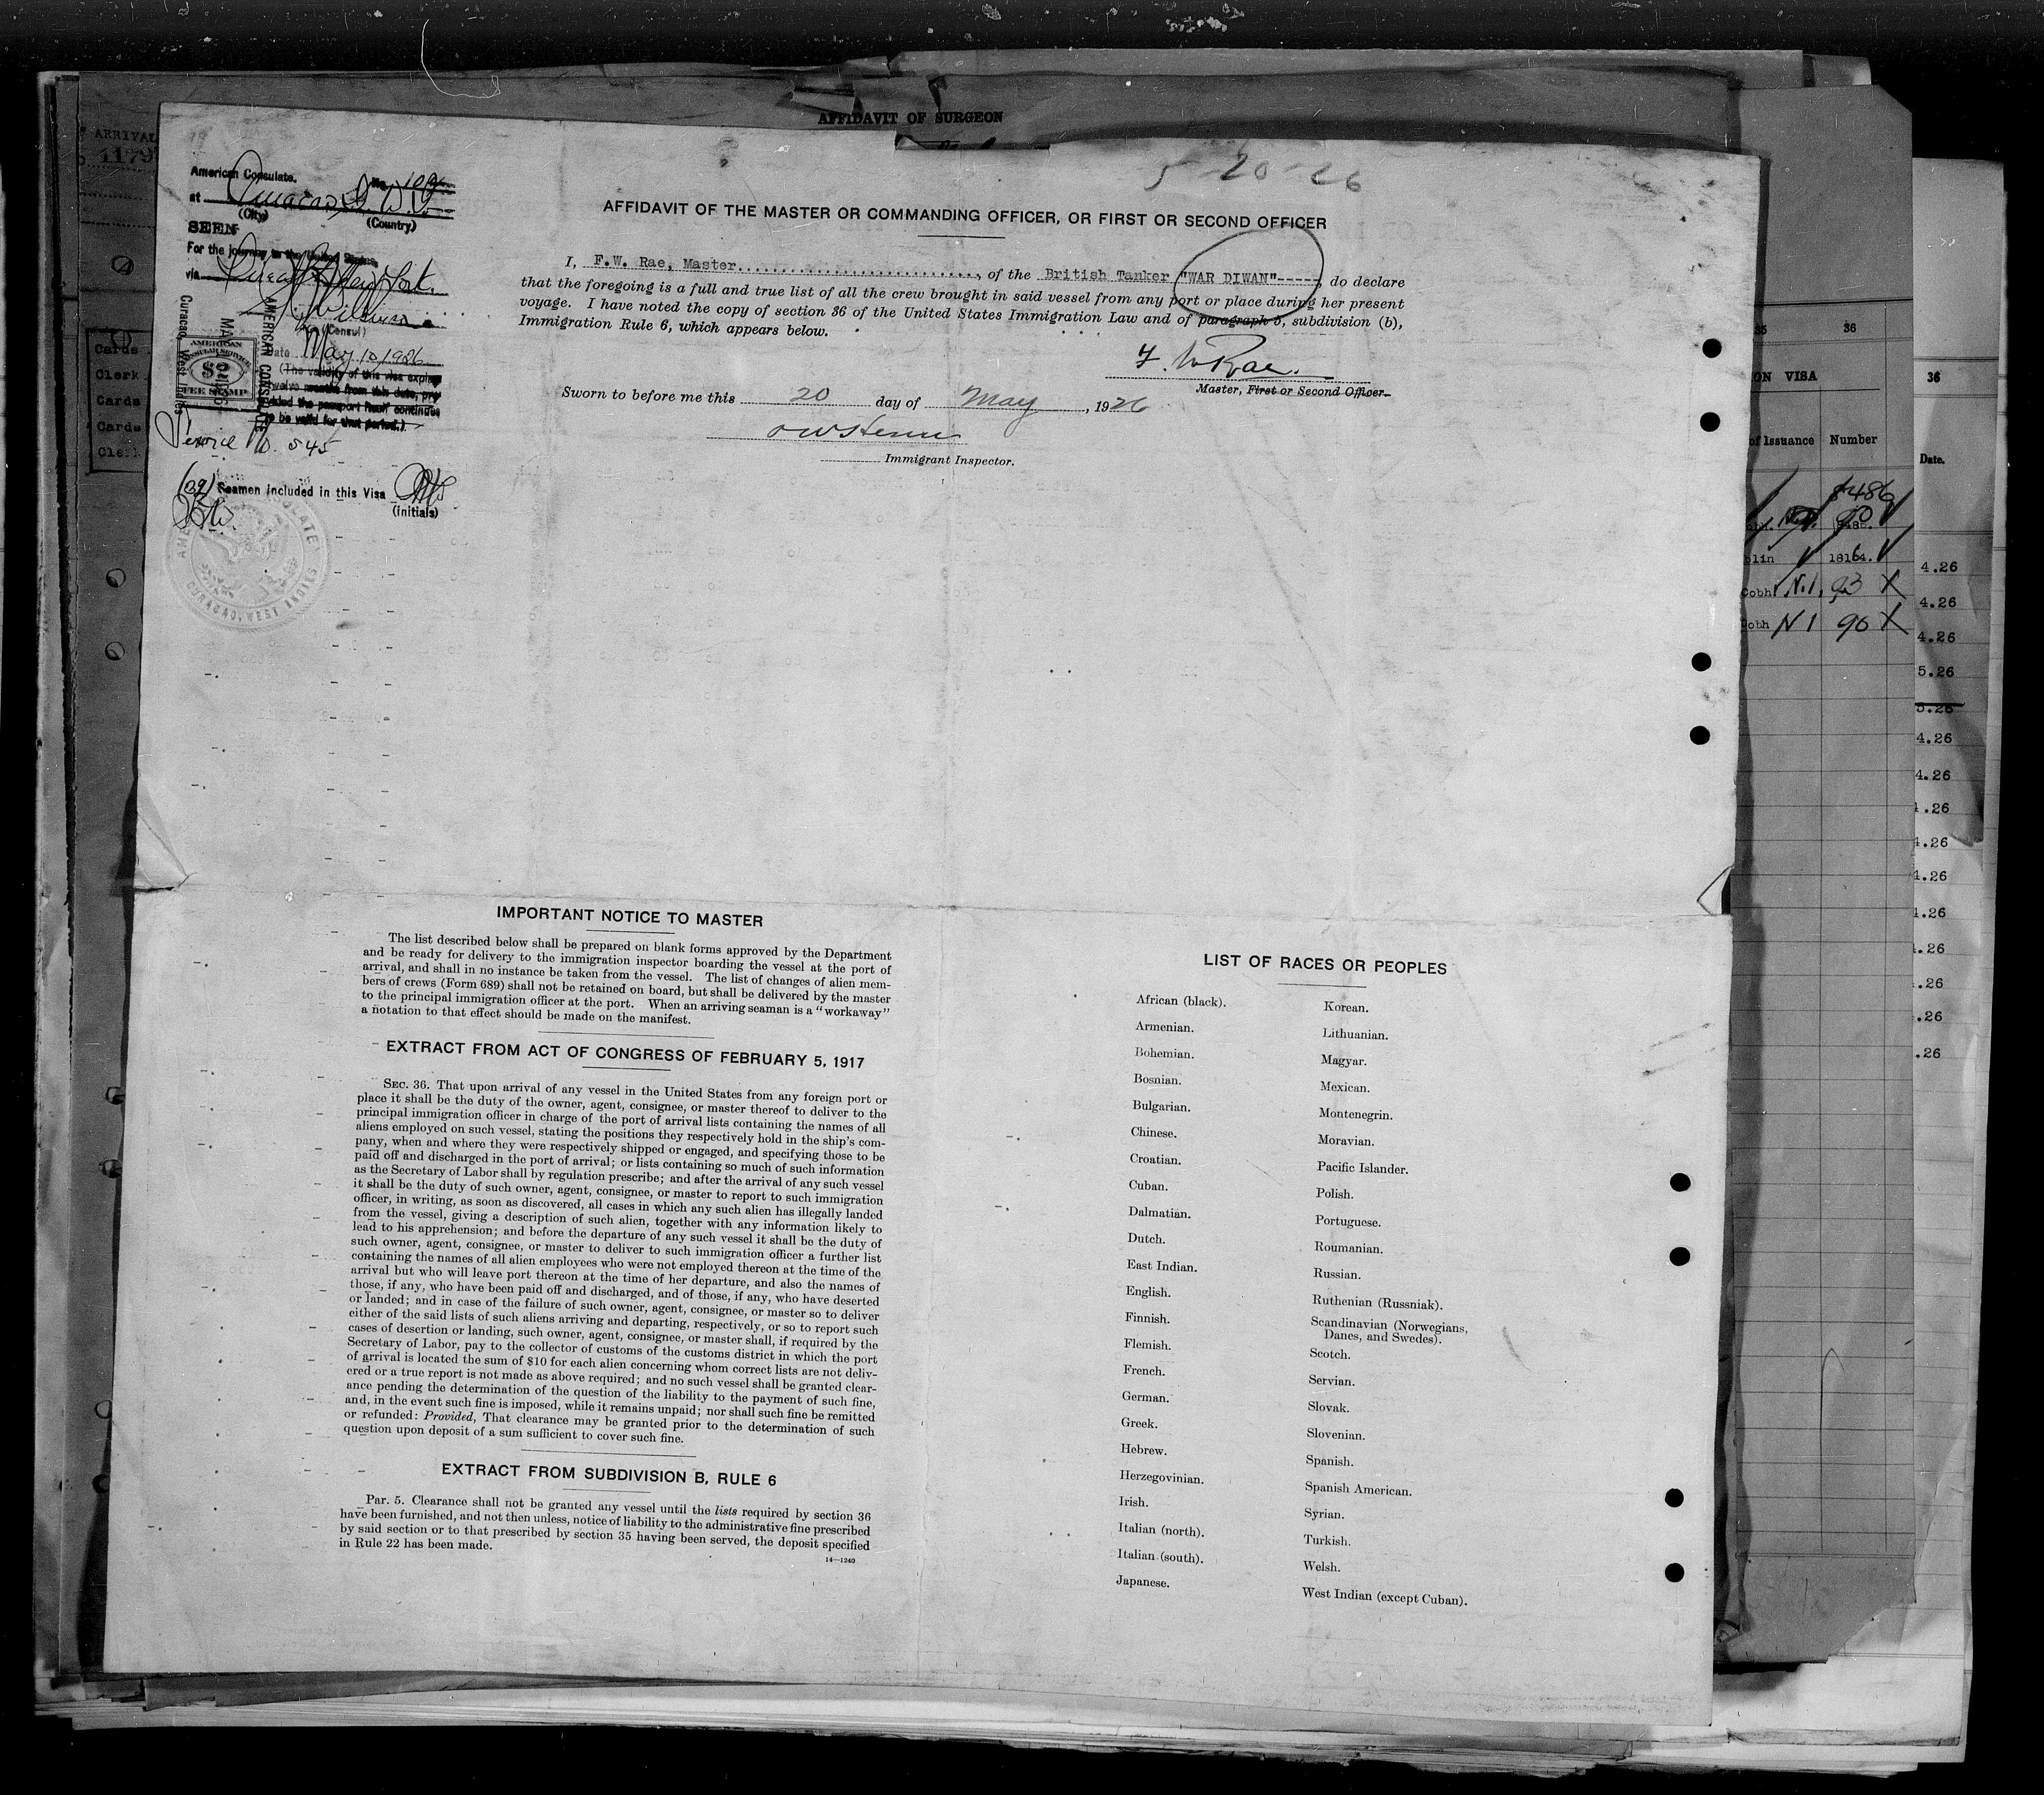 AFFIDAVIT OF SURGEON
ARRIVAL
1179
Cards
Clerk
Cards
Cards
Clerk
5-20-26
American Consulate.
No. 102
at Curacao, D.W.I.
(City)
(Country)
SEEN
For the journey to the United States
via Curacao New York.
(Consul)
Date May 10, 1926
(The validity of this visa expires
twelve months from this date, pro
vided the passport itself continues
to be valid for that period.)
AMERICAN CONSULATE
Curacao, West Indies
AMERICAN
CONSULAR SERVICE
$2
FEE STAMP
Service No. 545
(39) Seamen included in this Visa
(initials)
CURACAO, WEST INDIES
AFFIDAVIT OF THE MASTER OR COMMANDING OFFICER, OR FIRST OR SECOND OFFICER
I, F.W. Rae, Master, of the British Tanker "WAR DIWAN"-----, do declare
that the foregoing is a full and true list of all the crew brought in said vessel from any port or place during her present
voyage. I have noted the copy of section 36 of the United States Immigration Law and of paragraph 5, subdivision (b),
Immigration Rule 6, which appears below.
F. W Rae.
Master, First or Second Officer.
Sworn to before me this 20 day of May, 1926
Immigrant Inspector.
IMPORTANT NOTICE TO MASTER
The list described below shall be prepared on blank forms approved by the Department
and be ready for delivery to the immigration inspector boarding the vessel at the port of
arrival, and shall in no instance be taken from the vessel. The list of changes of alien mem-
bers of crews (Form 689) shall not be retained on board, but shall be delivered by the master
to the principal immigration officer at the port. When an arriving seaman is a "workaway"
a notation to that effect should be made on the manifest.
EXTRACT FROM ACT OF CONGRESS OF FEBRUARY 5, 1917
SEC. 36. That upon arrival of any vessel in the United States from any foreign port or
place it shall be the duty of the owner, agent, consignee, or master thereof to deliver to the
principal immigration officer in charge of the port of arrival lists containing the names of all
aliens employed on such vessel, stating the positions they respectively hold in the ship's com-
pany, when and where they were respectively shipped or engaged, and specifying those to be
paid off and discharged in the port of arrival; or lists containing so much of such information
as the Secretary of Labor shall by regulation prescribe; and after the arrival of any such vessel
it shall be the duty of such owner, agent, consignee, or master to report to such immigration
officer, in writing, as soon as discovered, all cases in which any such alien has illegally landed
from the vessel, giving a description of such alien, together with any information likely to
lead to his apprehension; and before the departure of any such vessel it shall be the duty of
such owner, agent, consignee, or master to deliver to such immigration officer a further list
containing the names of all alien employees who were not employed thereon at the time of the
arrival but who will leave port thereon at the time of her departure, and also the names of
those, if any, who have been paid off and discharged, and of those, if any, who have deserted
or landed; and in case of the failure of such owner, agent, consignee, or master so to deliver
either of the said lists of such aliens arriving and departing, respectively, or so to report such
cases of desertion or landing, such owner, agent, consignee, or master shall, if required by the
Secretary of Labor, pay to the collector of customs of the customs district in which the port
of arrival is located the sum of $10 for each alien concerning whom correct lists are not deliv-
ered or a true report is not made as above required; and no such vessel shall be granted clear-
ance pending the determination of the question of the liability to the payment of such fine,
and, in the event such fine is imposed, while it remains unpaid; nor shall such fine be remitted
or refunded: Provided, That clearance may be granted prior to the determination of such
question upon deposit of a sum sufficient to cover such fine.
EXTRACT FROM SUBDIVISION B, RULE 6
Par. 5. Clearance shall not be granted any vessel until the lists required by section 36
have been furnished, and not then unless, notice of liability to the administrative fine prescribed
by said section or to that prescribed by section 35 having been served, the deposit specified
in Rule 22 has been made.
14—1240
LIST OF RACES OR PEOPLES
African (black).
Armenian.
Bohemian.
Bosnian.
Bulgarian.
Chinese.
Croatian.
Cuban.
Dalmatian.
Dutch.
East Indian.
English.
Finnish.
Flemish.
French.
German.
Greek.
Hebrew.
Herzegovinian.
Irish.
Italian (north).
Italian (south).
Japanese.
Korean.
Lithuanian.
Magyar.
Mexican.
Montenegrin.
Moravian.
Pacific Islander.
Polish.
Portuguese.
Roumanian.
Russian.
Ruthenian (Russniak).
Scandinavian (Norwegians,
Danes, and Swedes).
Scotch.
Servian.
Slovak.
Slovenian.
Spanish.
Spanish American.
Syrian.
Turkish.
Welsh.
West Indian (except Cuban).
35 36
ON VISA
of Issuance Number
blin
Cobh N.1. 93 X
obh N 1 90 X
36
Date.
4.26
4.26
4.26
5.26
5.26
4.26
4.26
4.26
4.26
4.26
4.26
.26
.26
.26
.26